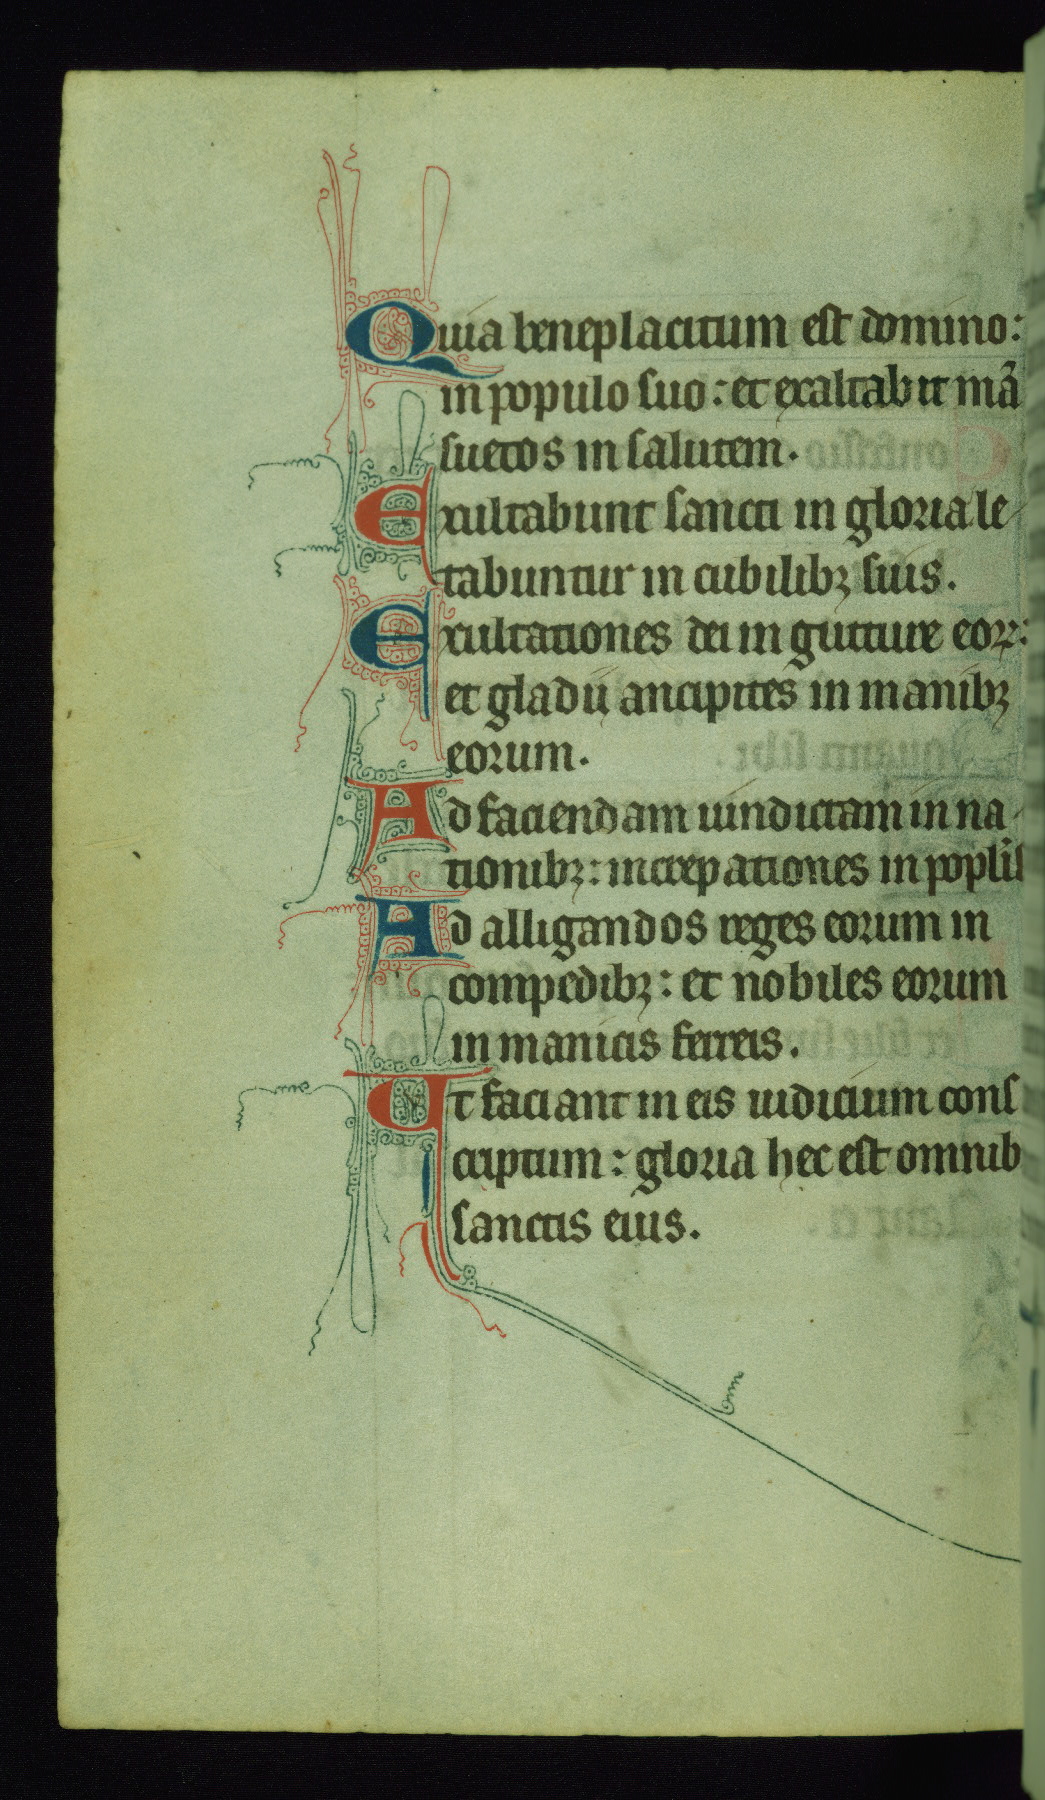 Quia beneplacitum est domino:
in populo suo: et exaltabit mā
suetos in salutem.
Exultabunt sancti in gloria le
tabuntur in cubilibꝫ suis.
Exultationes dei in gutture eoꝝ:
et gladii ancipites in manibꝫ
eorum.
Ad faciendam uindictam in na
tionibꝫ: increpationes in popl̄is
Ad alligandos reges eorum in
compedibꝫ: et nobiles eorum
in manicis ferreis.
Ut faciant in eis iudicium cons
criptum: gloria hec est omnib
sanctis eius.